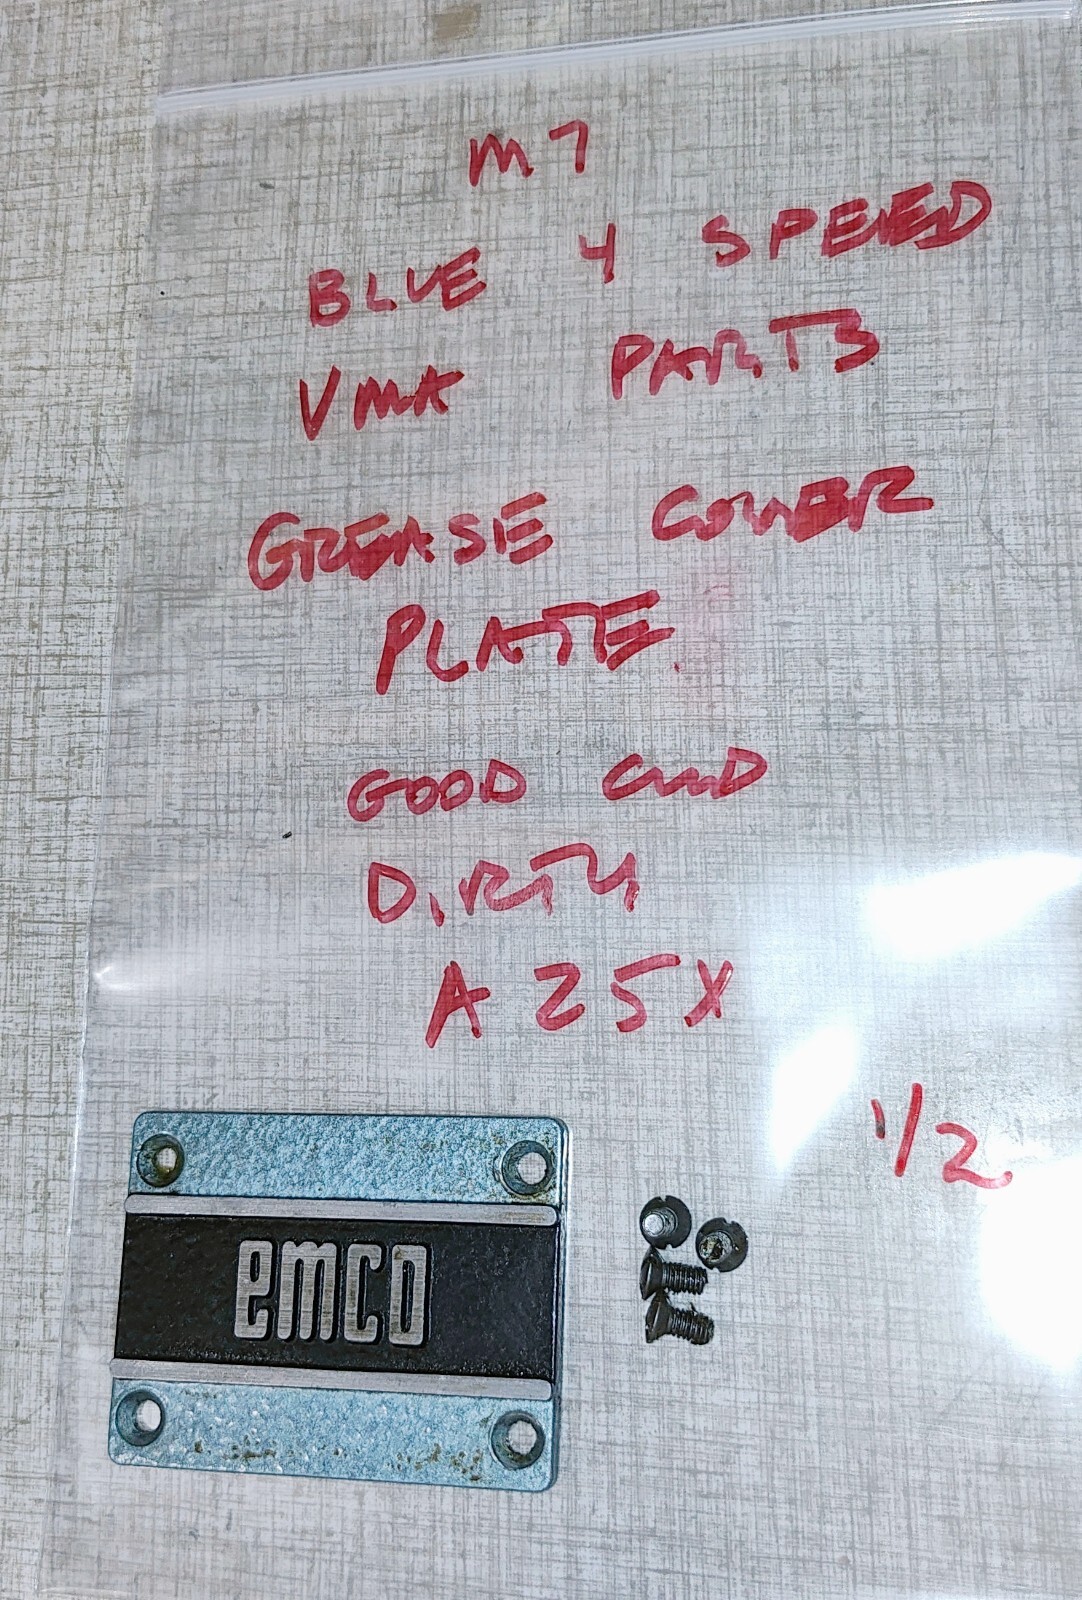 M7
BLUE 4 SPEED
VMA PARTS
GREASE COVER
PLATE
GOOD COND
DIRTY
A 25X
1/2
emco